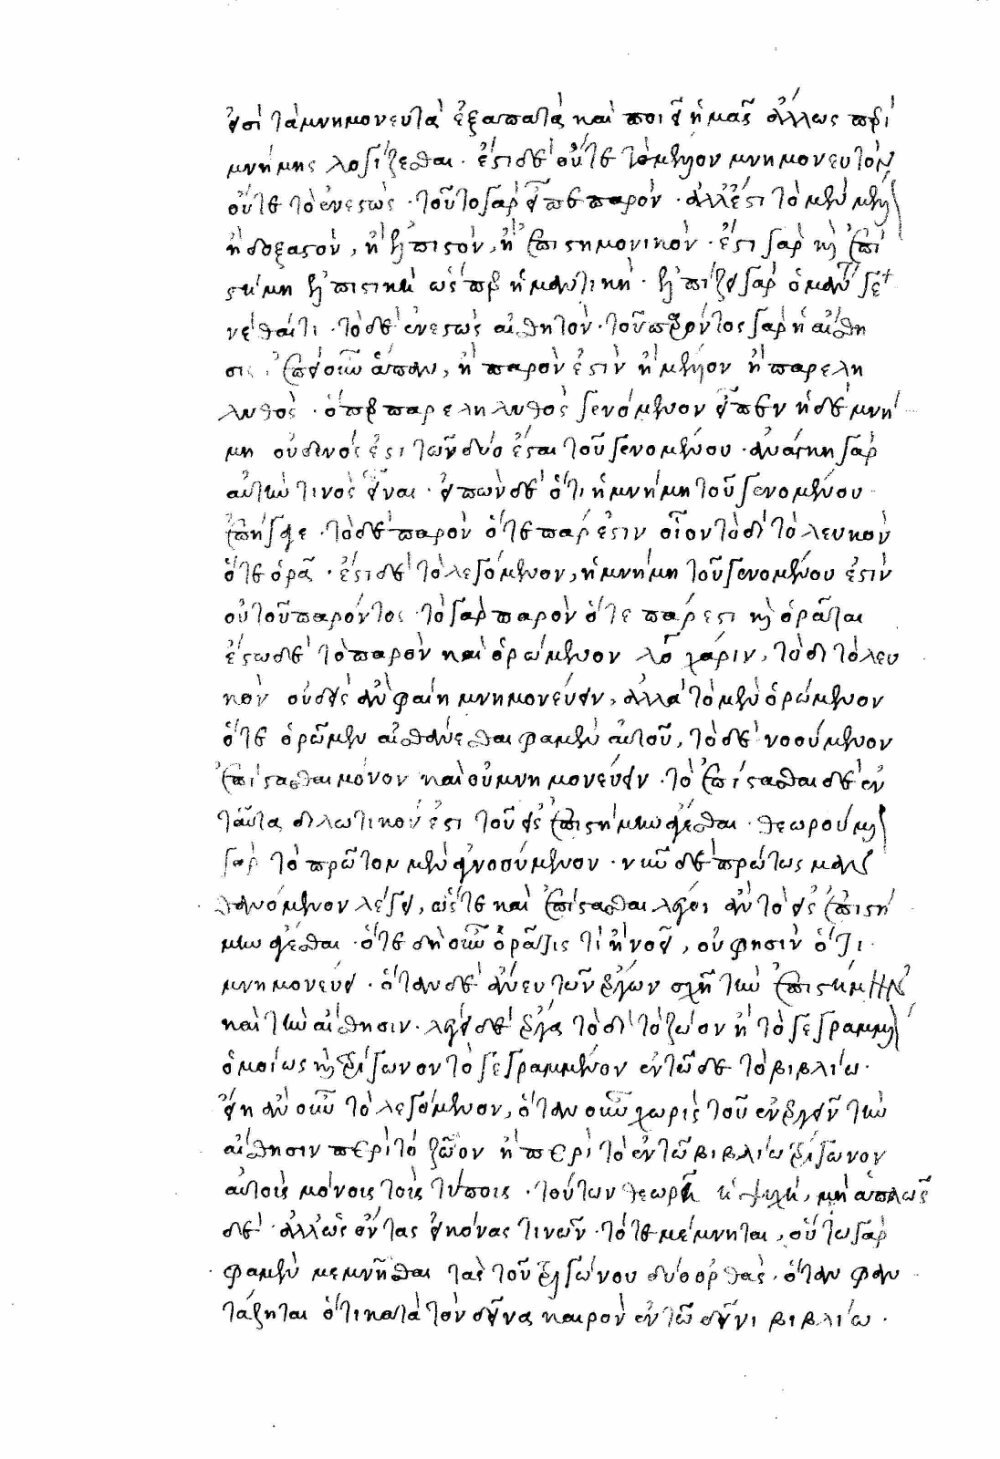 εισὶ τὰ μνημονευτὰ ἐξαπατᾷ καὶ ποιεῖ ἡμᾶς ἄλλως περὶ
μνήμης λογίζεσθαι· ἔστι δὲ οὔτε τὸ μέλλον μνημονευτὸν
οὔτε τὸ ἐνεστώς· τοῦτο γὰρ εἶπε παρόν· ἀλλ' ἔστι τὸ μὲν μέλλον
ἢ δοξαστόν, ἢ ἐλπιστόν, ἢ ἐπιστημονικόν· ἔστι γὰρ καὶ ἐπι
στήμη ἐλπιστικὴ ὥσπερ ἡ μαντική· ἐλπίζει γὰρ ὁ μάντις
γενέσθαι τι· τὸ δὲ ἐνεστὼς αἰσθητόν· τοῦ παρόντος γὰρ ἡ αἴσθη
σις· ἐπεὶ οὖν ἅπαν, ἢ παρόν ἐστιν ἢ μέλλον ἢ παρελη
λυθός· ὅπερ παρεληλυθὸς γενόμενον εἶπεν ἡ δὲ μνή
μη οὐδενός ἐστι τῶν δύο ἔσται τοῦ γενομένου· ἀνάγκη γὰρ
αὐτήν τινος εἶναι· εἰπὼν δὲ ὅτι ἡ μνήμη τοῦ γενομένου
ἐπήγαγε· τὸ δὲ παρὸν ὅτε πάρεστιν οἷον τοδὶ τὸ λευκὸν
ὅτε ὁρᾷ· ἔστι δὲ τὸ λεγόμενον, ἡ μνήμη τοῦ γενομένου ἐστὶν
οὐ τοῦ παρόντος· τὸ γὰρ παρὸν ὅτε πάρεστι καὶ ὁρᾶται
ἔστω δὲ τὸ παρὸν καὶ ὁρώμενον λόγου χάριν, τοδὶ τὸ λευ
κὸν οὐδεὶς ἂν φαίη μνημονεύειν, ἀλλὰ τὸ μὲν ὁρώμενον
ὅτε ὁρῶμεν αἰσθάνεσθαι φαμὲν αὐτοῦ, τὸ δὲ νοούμενον
ἐπίστασθαι μόνον καὶ οὐ μνημονεύειν· τὸ ἐπίστασθαι δὲ ἐν
ταῦτα δηλωτικόν ἐστι τοῦ εἰς ἐπιστήμην ἄγεσθαι· θεωρούμενον
γὰρ τὸ πρῶτον μὲν ἢ νοούμενον· νῦν δὲ πρώτως μαν
θανόμενον λέγει, ὥστε καὶ ἐπίστασθαι λέγοι ἂν τὸ εἰς ἐπιστή
μην ἄγεσθαι· ὅτε δὴ οὖν ὁρᾷ τίς τι ἢ νοεῖ, οὔ φησιν ὅτι
μνημονεύει· ὅταν δὲ ἄνευ τῶν ἔργων σχῇ τὴν ἐπιστήμην
καὶ τὴν αἴσθησιν· λέγει δὲ ἔργα τοδὶ τὸ ζῷον ἢ τὸ γεγραμμένον
ὁμοίως καὶ τρίγωνον τὸ γεγραμμένον ἐν τῷδε τῷ βιβλίῳ·
εἴη ἂν οὖν τὸ λεγόμενον, ὅταν οὖν χωρὶς τοῦ ἐνεργεῖν τὴν
αἴσθησιν περὶ τὸ ζῷον ἢ περὶ τὸ ἐν τῷ βιβλίῳ τρίγωνον
αὐτοῖς μόνοις τοῖς τύποις· τούτων θεωρῇ ἡ ψυχή, μὴ ἁπλῶς
δὲ· ἀλλ' ὡς ὄντας εἰκόνας τινῶν· τότε μέμνηται, οὕτω γὰρ
φαμὲν μεμνῆσθαι τὰς τοῦ τριγώνου δύο ὀρθάς· ὅταν φαν
τάζηται ὅτι κατὰ τὸν δεῖνα καιρὸν ἐν τῷ δεῖνι βιβλίῳ·